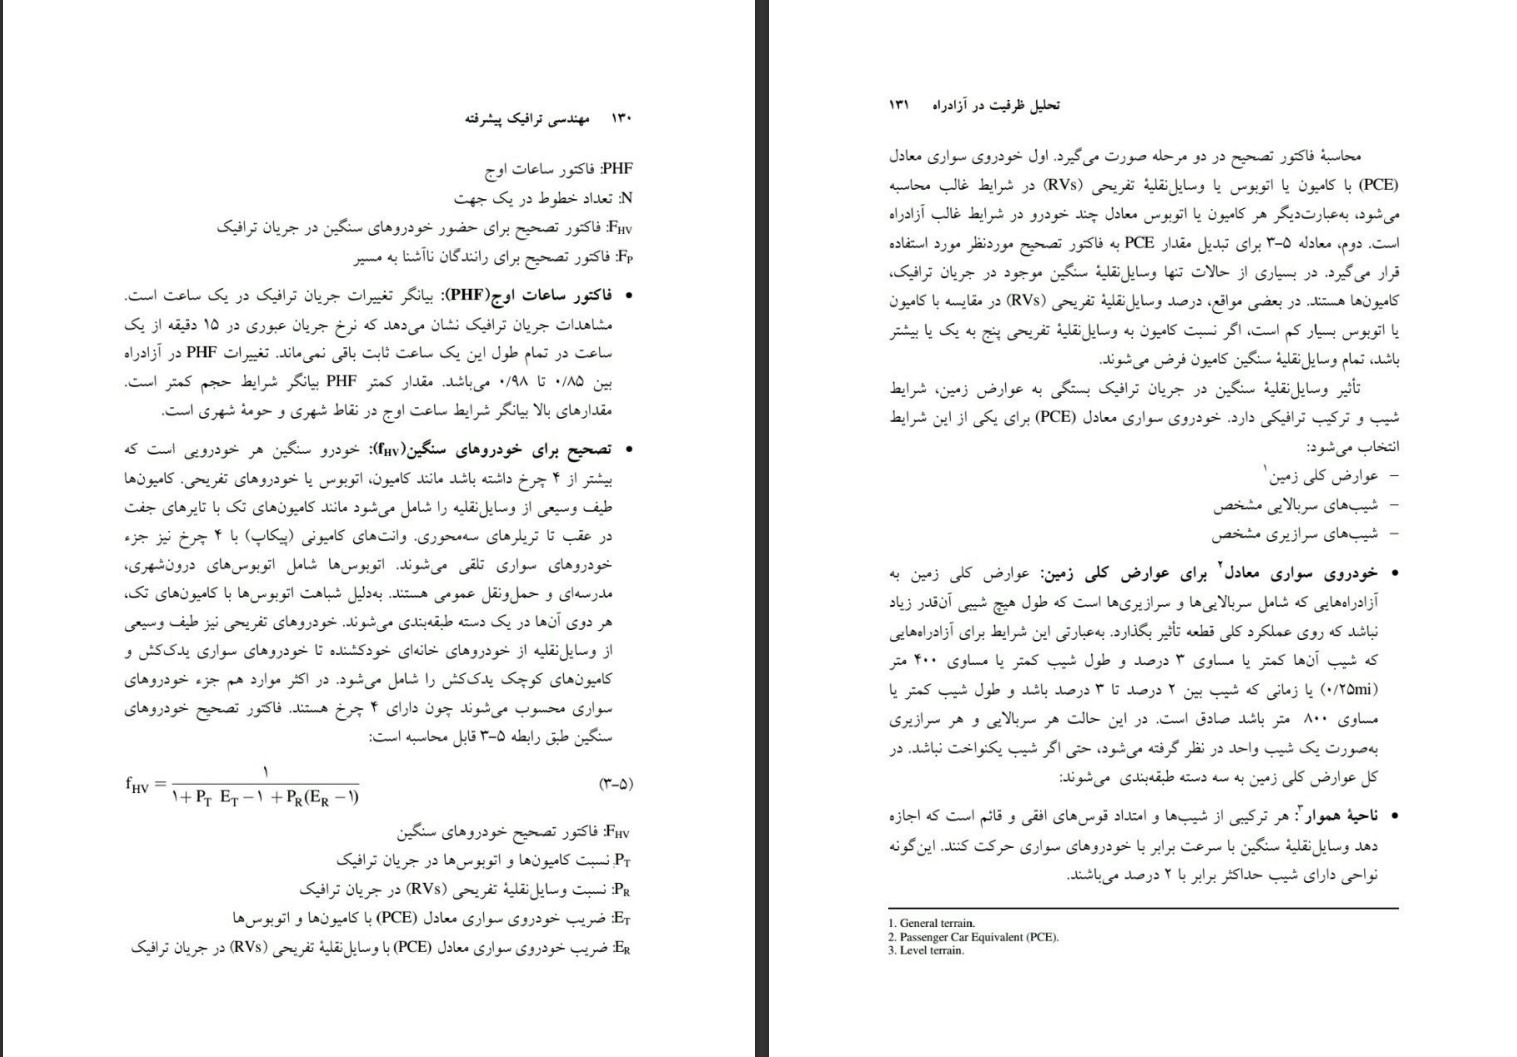 ۱۳۰ مهندسی ترافیک پیشرفته
PHF: فاکتور ساعات اوج
N: تعداد خطوط در یک جهت
FHV: فاکتور تصحیح برای حضور خودروهای سنگین در جریان ترافیک
FP: فاکتور تصحیح برای رانندگان ناآشنا به مسیر
• فاکتور ساعات اوج(PHF): بیانگر تغییرات جریان ترافیک در یک ساعت است.
مشاهدات جریان ترافیک نشان می‌دهد که نرخ جریان عبوری در ۱۵ دقیقه از یک
ساعت در تمام طول این یک ساعت ثابت باقی نمی‌ماند. تغییرات PHF در آزادراه
بین ۰/۸۵ تا ۰/۹۸ می‌باشد. مقدار کمتر PHF بیانگر شرایط حجم کمتر است.
مقدارهای بالا بیانگر شرایط ساعت اوج در نقاط شهری و حومهٔ شهری است.
• تصحیح برای خودروهای سنگین(fHV): خودرو سنگین هر خودرویی است که
بیشتر از ۴ چرخ داشته باشد مانند کامیون، اتوبوس یا خودروهای تفریحی. کامیون‌ها
طیف وسیعی از وسایل‌نقلیه را شامل می‌شود مانند کامیون‌های تک با تایرهای جفت
در عقب تا تریلرهای سه‌محوری. وانت‌های کامیونی (پیکاپ) با ۴ چرخ نیز جزء
خودروهای سواری تلقی می‌شوند. اتوبوس‌ها شامل اتوبوس‌های درون‌شهری،
مدرسه‌ای و حمل‌ونقل عمومی هستند. به‌دلیل شباهت اتوبوس‌ها با کامیون‌های تک،
هر دوی آن‌ها در یک دسته طبقه‌بندی می‌شوند. خودروهای تفریحی نیز طیف وسیعی
از وسایل‌نقلیه از خودروهای خانه‌ای خودکشنده تا خودروهای سواری یدک‌کش و
کامیون‌های کوچک یدک‌کش را شامل می‌شود. در اکثر موارد هم جزء خودروهای
سواری محسوب می‌شوند چون دارای ۴ چرخ هستند. فاکتور تصحیح خودروهای
سنگین طبق رابطه ۵-۳ قابل محاسبه است:
(۳-۵) fHV = ۱ / ۱+ PT ET −۱ + PR(ER −۱)
FHV: فاکتور تصحیح خودروهای سنگین
PT: نسبت کامیون‌ها و اتوبوس‌ها در جریان ترافیک
PR: نسبت وسایل‌نقلیهٔ تفریحی (RVs) در جریان ترافیک
ET: ضریب خودروی سواری معادل (PCE) با کامیون‌ها و اتوبوس‌ها
ER: ضریب خودروی سواری معادل (PCE) با وسایل‌نقلیهٔ تفریحی (RVs) در جریان ترافیک
تحلیل ظرفیت در آزادراه ۱۳۱
محاسبهٔ فاکتور تصحیح در دو مرحله صورت می‌گیرد. اول خودروی سواری معادل
(PCE) با کامیون یا اتوبوس یا وسایل‌نقلیهٔ تفریحی (RVs) در شرایط غالب محاسبه
می‌شود، به‌عبارت‌دیگر هر کامیون یا اتوبوس معادل چند خودرو در شرایط غالب آزادراه
است. دوم، معادله ۵-۳ برای تبدیل مقدار PCE به فاکتور تصحیح موردنظر مورد استفاده
قرار می‌گیرد. در بسیاری از حالات تنها وسایل‌نقلیهٔ سنگین موجود در جریان ترافیک،
کامیون‌ها هستند. در بعضی مواقع، درصد وسایل‌نقلیهٔ تفریحی (RVs) در مقایسه با کامیون
یا اتوبوس بسیار کم است، اگر نسبت کامیون به وسایل‌نقلیهٔ تفریحی پنج به یک یا بیشتر
باشد، تمام وسایل‌نقلیهٔ سنگین کامیون فرض می‌شوند.
تأثیر وسایل‌نقلیهٔ سنگین در جریان ترافیک بستگی به عوارض زمین، شرایط
شیب و ترکیب ترافیکی دارد. خودروی سواری معادل (PCE) برای یکی از این شرایط
انتخاب می‌شود:
− عوارض کلی زمین۱
− شیب‌های سربالایی مشخص
− شیب‌های سرازیری مشخص
• خودروی سواری معادل۲ برای عوارض کلی زمین: عوارض کلی زمین به
آزادراه‌هایی که شامل سربالایی‌ها و سرازیری‌ها است که طول هیچ شیبی آن‌قدر زیاد
نباشد که روی عملکرد کلی قطعه تأثیر بگذارد. به‌عبارتی این شرایط برای آزادراه‌هایی
که شیب آن‌ها کمتر یا مساوی ۳ درصد و طول شیب کمتر یا مساوی ۴۰۰ متر
(۰/۲۵mi) یا زمانی که شیب بین ۲ درصد تا ۳ درصد باشد و طول شیب کمتر یا
مساوی ۸۰۰ متر باشد صادق است. در این حالت هر سربالایی و هر سرازیری
به‌صورت یک شیب واحد در نظر گرفته می‌شود، حتی اگر شیب یکنواخت نباشد. در
کل عوارض کلی زمین به سه دسته طبقه‌بندی می‌شوند:
• ناحیهٔ هموار۳: هر ترکیبی از شیب‌ها و امتداد قوس‌های افقی و قائم است که اجازه
دهد وسایل‌نقلیهٔ سنگین با سرعت برابر با خودروهای سواری حرکت کنند. این‌گونه
نواحی دارای شیب حداکثر برابر با ۲ درصد می‌باشند.
1. General terrain.
2. Passenger Car Equivalent (PCE).
3. Level terrain.